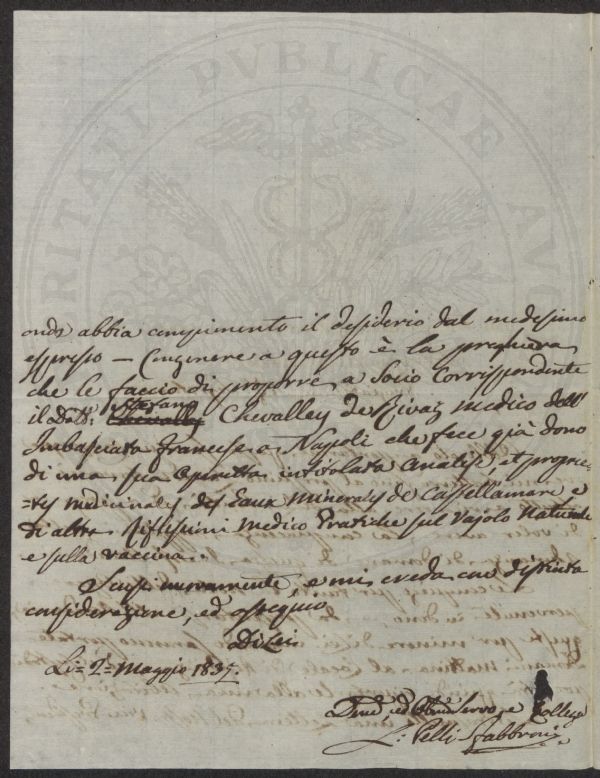 PROSPERITATI PVBLICAE AVGENDAE
onde abbia compimento il desiderio dal medesimo
espresso — Congenere a questo è la preghiera
che le faccio di proporre a Socio Corrispondente
il Dott: Stefano Chevalley de Rivaz medico dell'
Imbasciata francese a Napoli che fece già dono
di una sua Operetta intitolata Analise, et proprie-
=tes medicinales des Eaux Minerales de Castellamare e
di altre Riflessioni Medico Pratiche sul Vajolo Naturale
e sulla vaccina.
Scusi nuovamente, e mi creda con distinta
considerazione, ed ossequio
Di Lei
Li = 2 = Maggio 1835.
Devo, ed Obbmo Servo, e Collega
L: Pelli Fabbroni